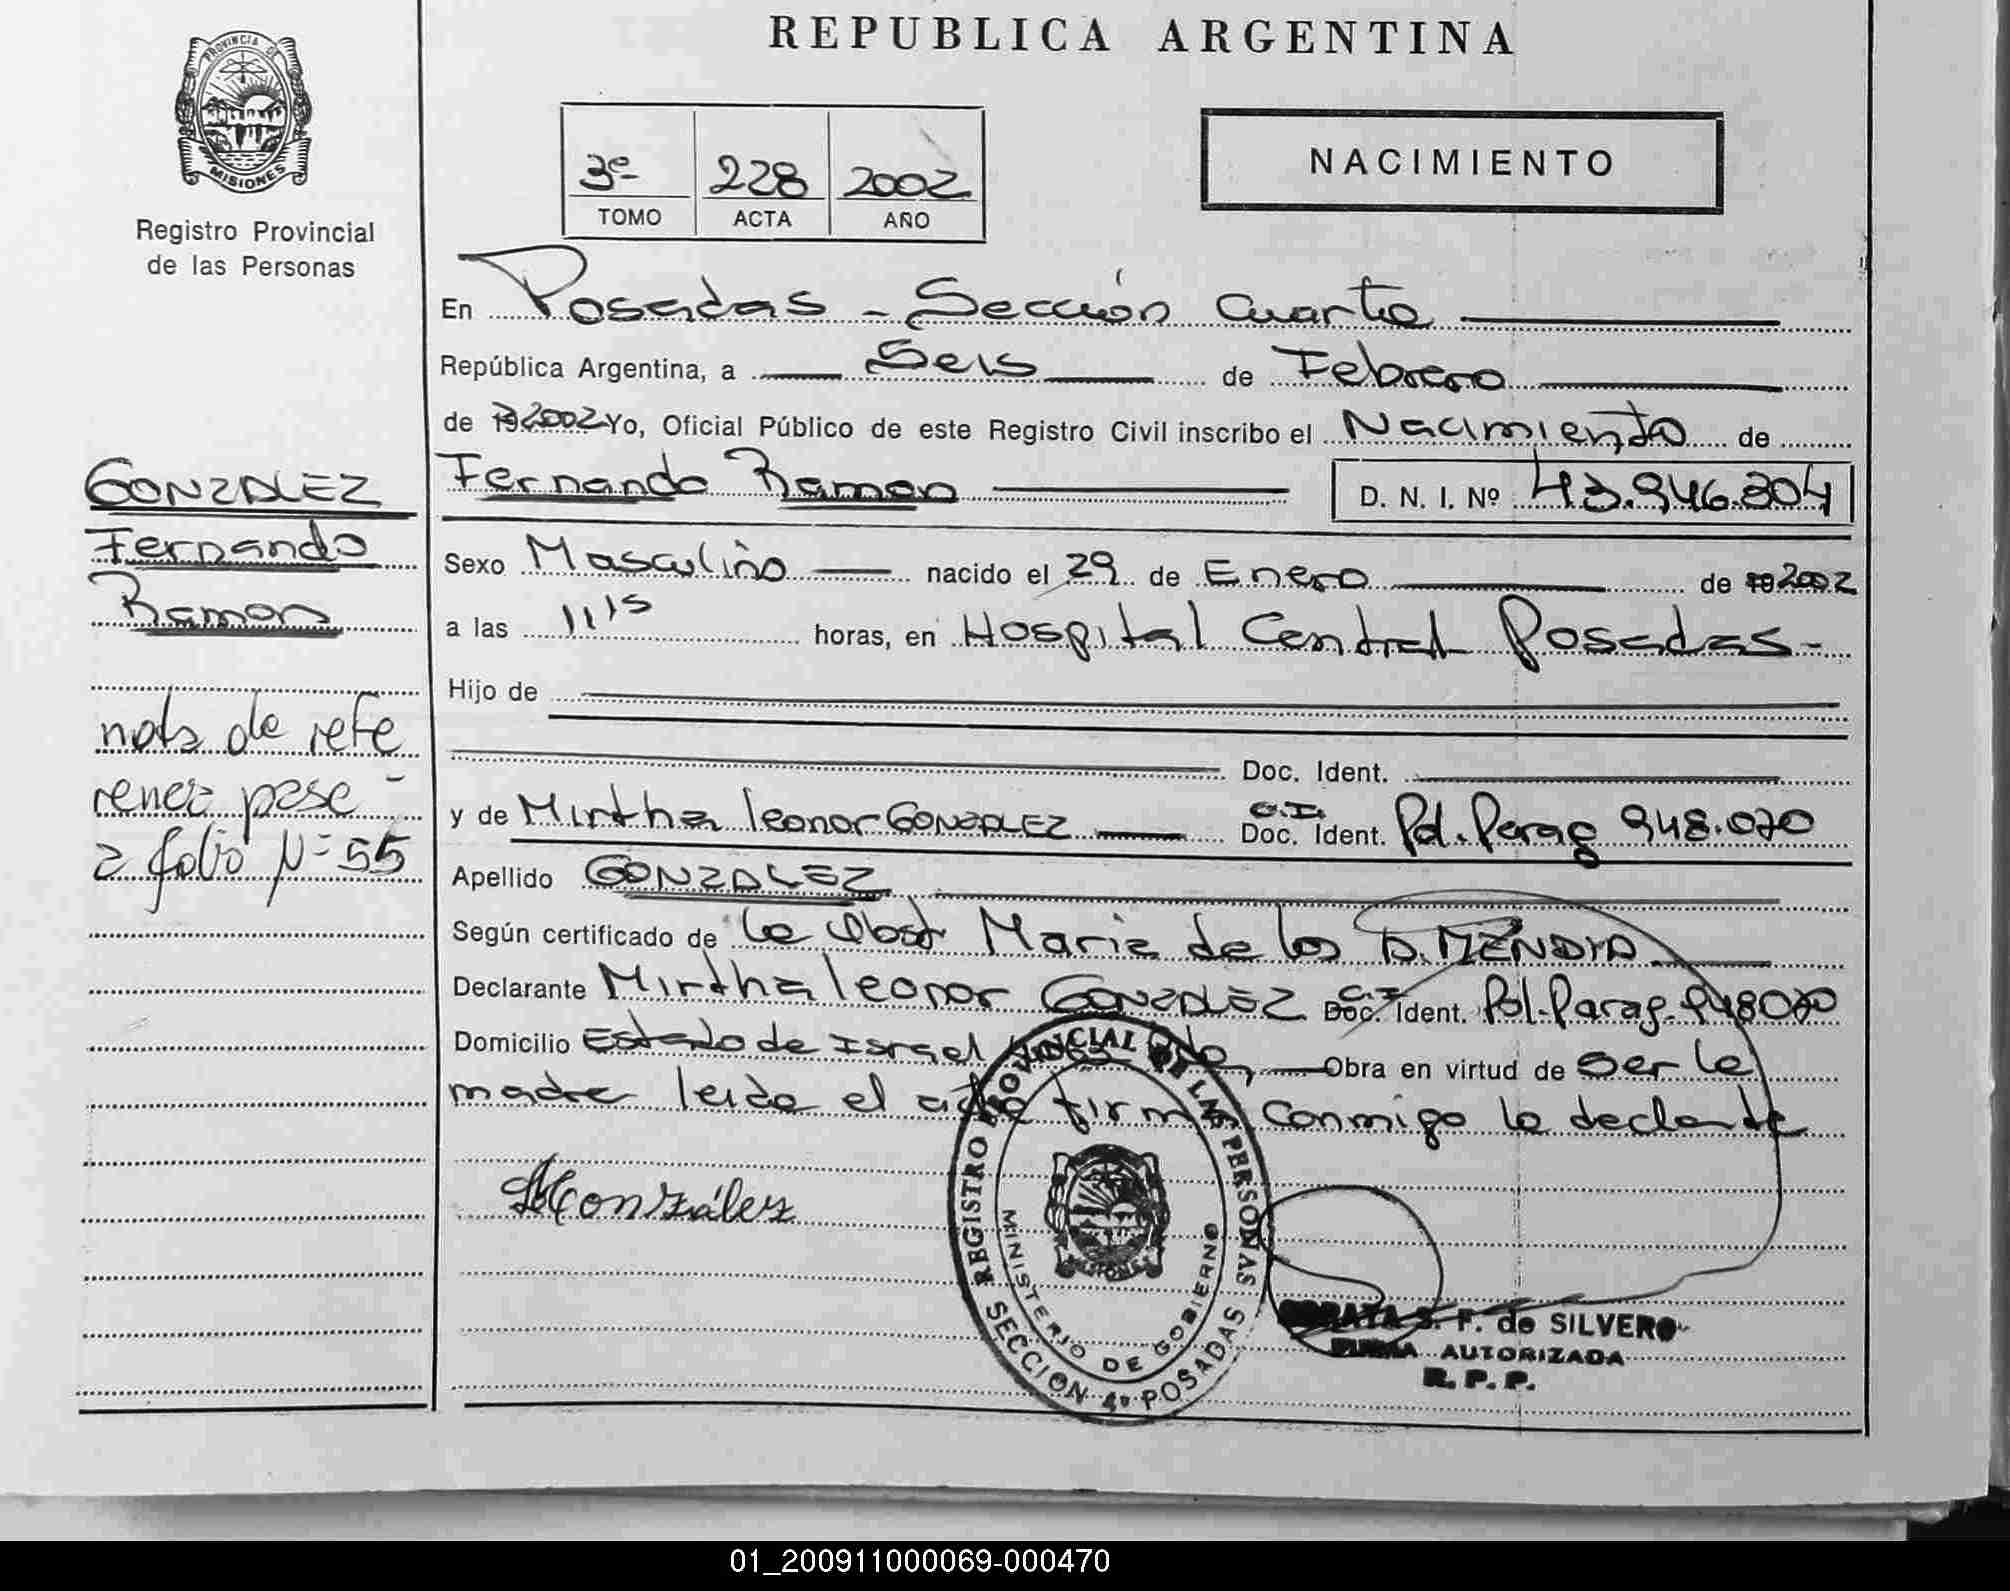 REPUBLICA ARGENTINA
PROVINCIA DE
MISIONES
Registro Provincial
de las Personas
3º 228 2002
TOMO ACTA AÑO
NACIMIENTO
En Posadas - Sección Cuarta
República Argentina, a Seis de Febrero
de 19 2002 Yo, Oficial Público de este Registro Civil inscribo el Nacimiento de
Fernando Ramon D. N. I. Nº 43.946.304
GONZALEZ
Fernando
Ramon
Sexo Masculino nacido el 29 de Enero de 19 2002
a las 11 15 horas, en Hospital Central Posadas-
Hijo de
Doc. Ident.
nota de refe
rencia pase
a folio Nº 55
y de Mirtha leonor GONZALEZ C.I. Doc. Ident. Pol. Parag 948.070
Apellido GONZALEZ
Según certificado de la Obst Maria de los A. MENDIA
Declarante Mirtha leonor GONZALEZ C.I. Doc. Ident. Pol. Parag. 948070
Domicilio Estado de Israel Obra en virtud de ser la
madre leida el acta firma conmigo la declarante
González
REGISTRO PROVINCIAL DE LAS PERSONAS
MINISTERIO DE GOBIERNO
SECCION 4º POSADAS
S. F. de SILVERO
FIRMA AUTORIZADA
R. P. P.
01_200911000069-000470